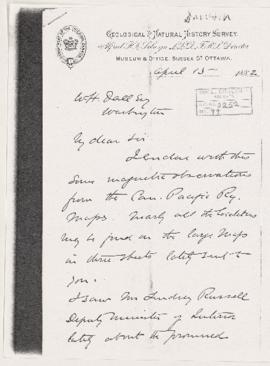 Geological & Natural History Survey
Alfred R. C. Selwyn LL.D., F.R.S. Director
Museum & Office. Sussex St Ottawa.
April 13 1882
W H Dall Esq
Washington
My dear Sir
I enclose with this
some magnetic observations
from the Can. Pacific Ry.
maps. Nearly all the localities
may be found on the large Map
in three sheets lately sent to
you.
I saw Mr Lindsay Russell
Deputy Minister of Interior
lately about the promised